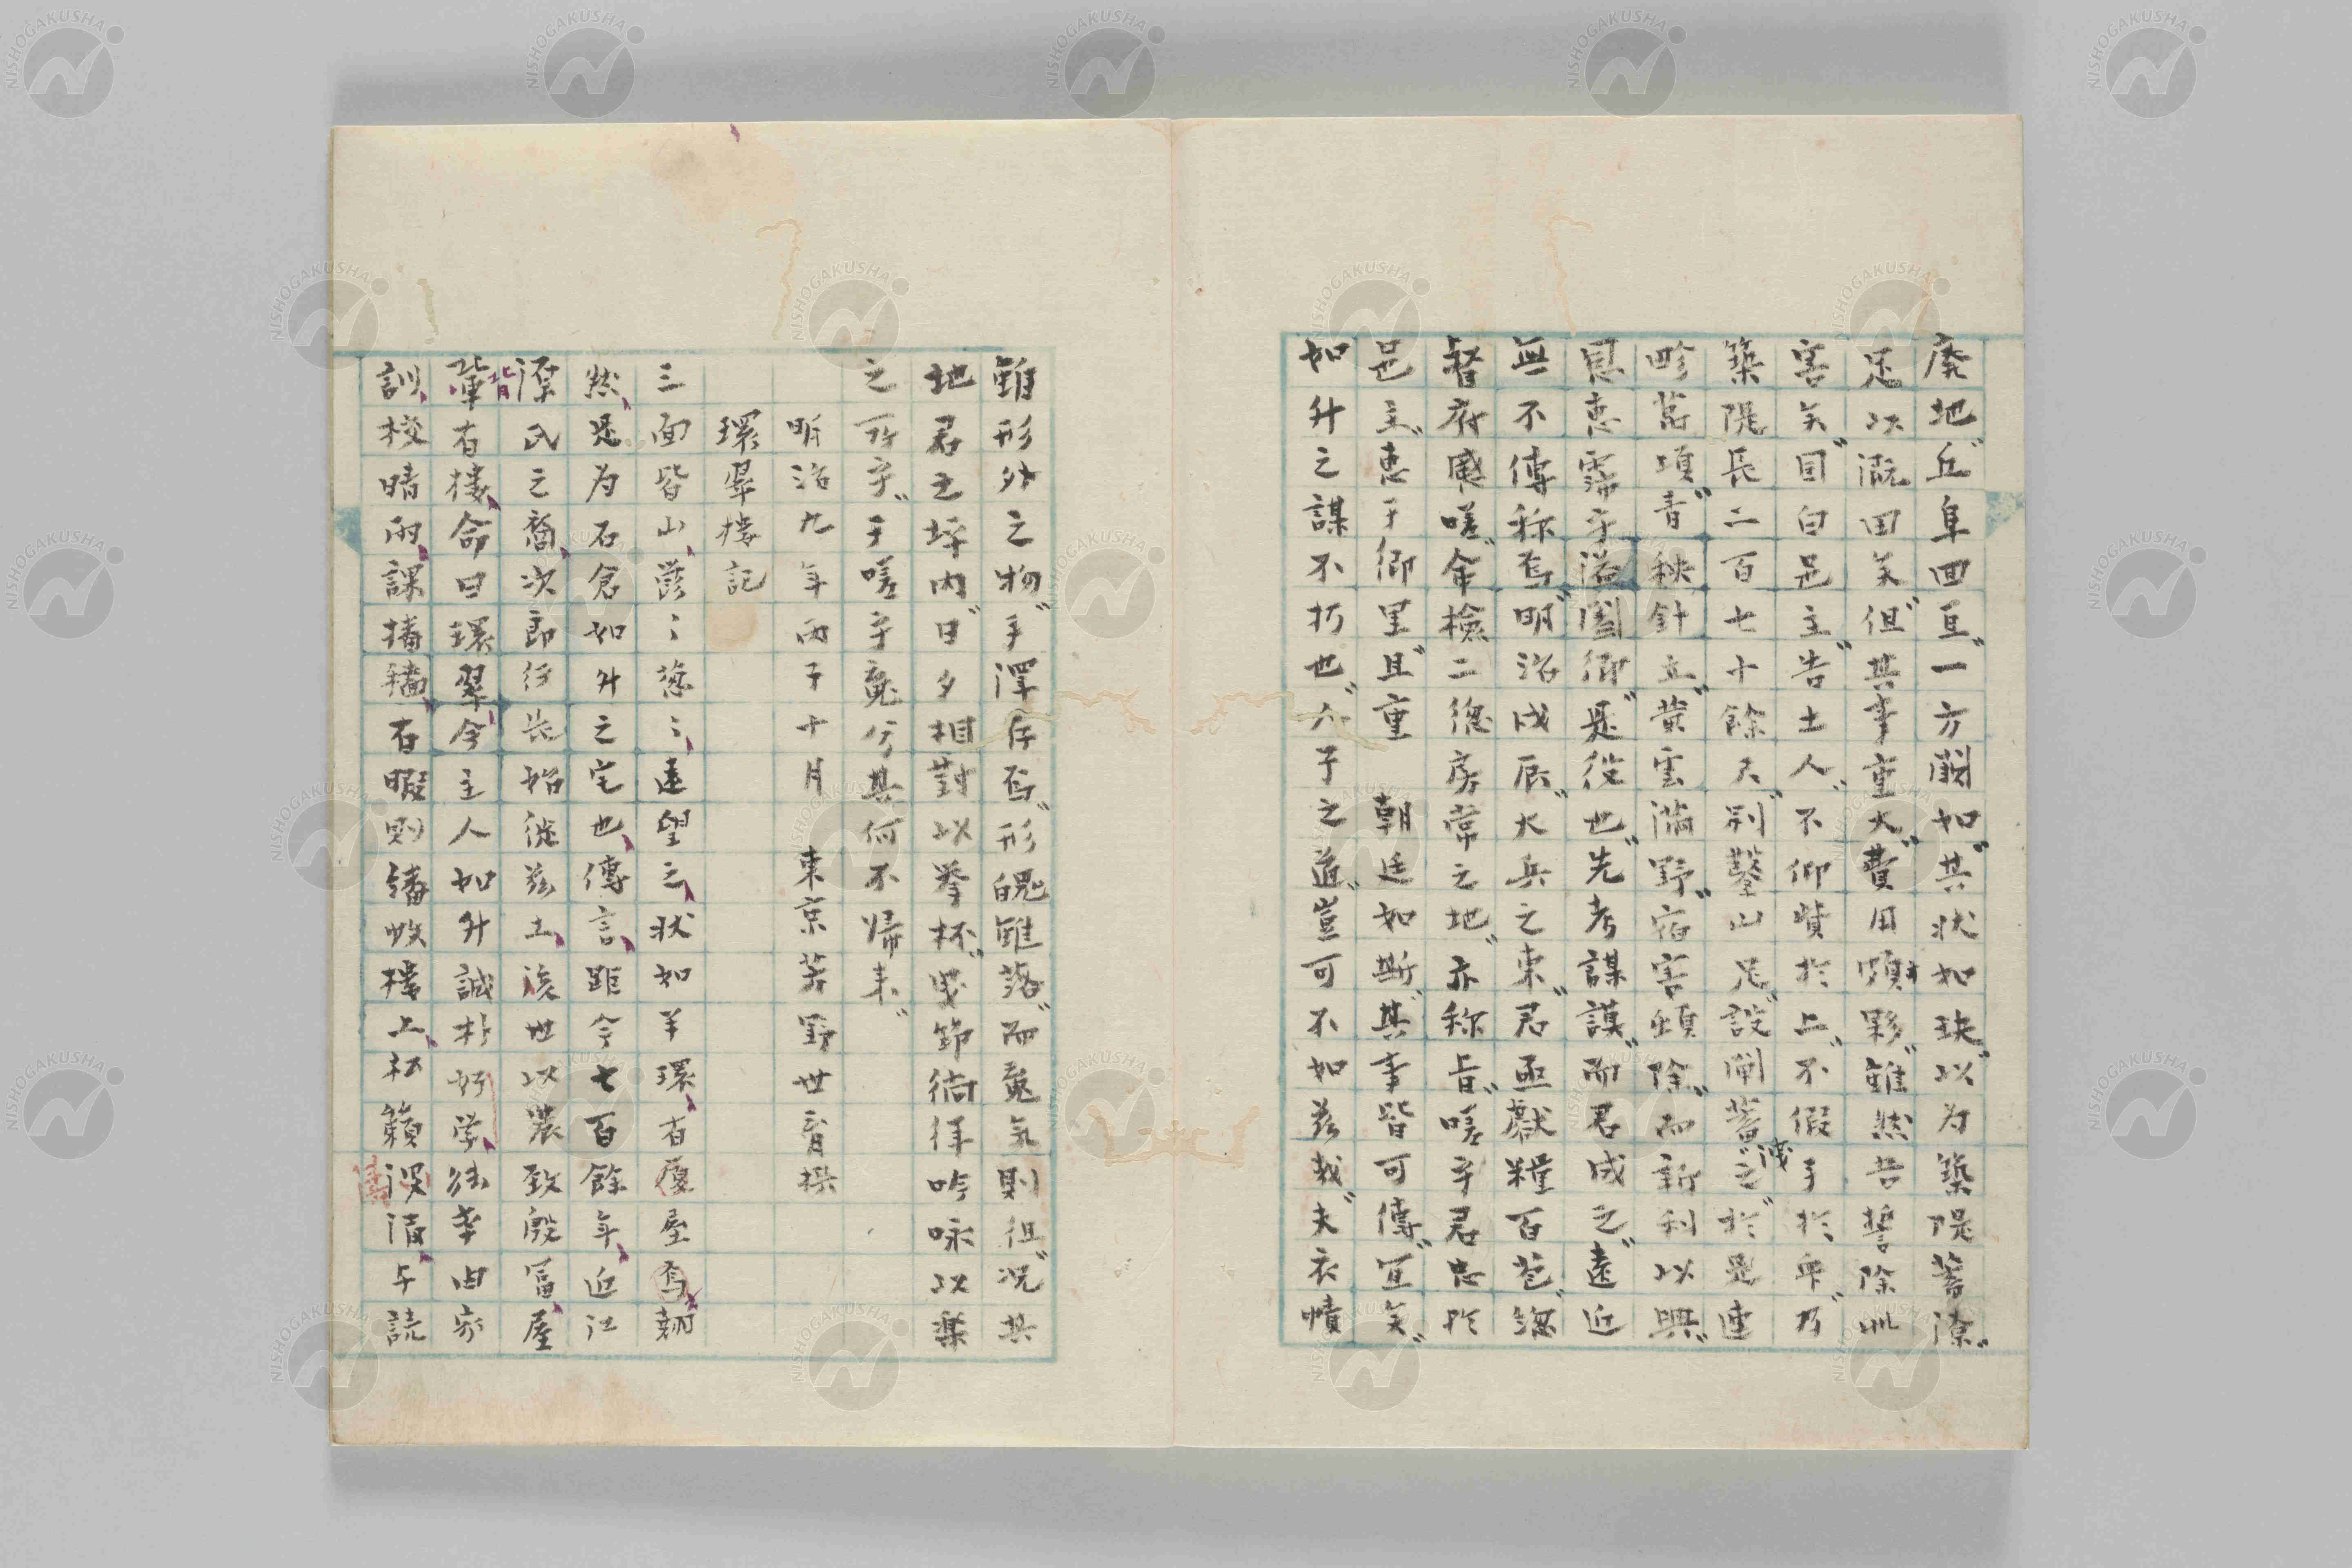 廃地丘阜四亘一方闕如其状如玦以为築隄蓄潦
足以漑田矣但其事重大費用頗夥雖然苦誓除此
害矣因白邑主告土人不仰貲於上不假手於卑乃
築隄長二百七十餘尺別鑿山足設閘蓄洩之於是連
畛萬頃青秧針立黄雲満野宿害頓除而新利以興
恩恵霈乎溢闔郷是役也先考謀謨而君成之遠近
無不傳称焉明治戊辰大兵之東君亟獻糧百苞総
督府感嗟命檢二総房常之地亦称旨嗟乎君忠於
邑主恵于郷里且重　朝廷如斯其事皆可傳宜矣
如升之謀不朽也人子之道豈可不如茲哉夫衣幘
雖形外之物手澤存焉形魄雖落而䰟氣則徂況其
地君之坪内日夕相對以擧杯曳節徜徉吟咏以楽
之所乎于嗟乎䰟兮其何不帰来
明治九年丙子十月　東京芳野世育撰
環翠楼記
三面皆山欝〻葱〻遠望之状如半環有廈屋焉翹
然是为石倉如升之宅也傳言距今七百餘年近江
源氏之裔次郎仔長始徙茲土後世以農致殷冨屋
背有楼命曰環翠今主人如升誠朴好学経幸由家
訓挍晴雨課播穡有暇則繙帙楼上松籟浸清与読
NISHOGAKUSHA